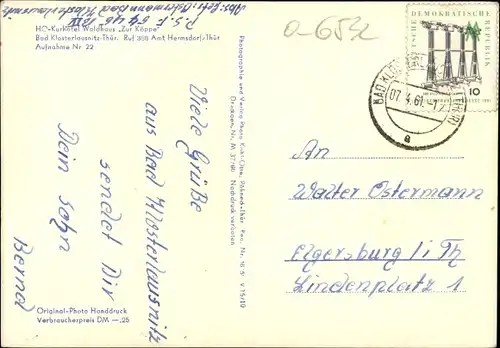 Abs. Gefr. Ostermann Bad Klosterlausnitz
P.S.F. 54 46
HO-Kurhotel Waldhaus „Zur Köppe"
Bad Klosterlausnitz-Thür. Ruf 388 Amt Hermsdorf/Thür
Aufnahme Nr 22
Viele Grüße
aus Bad Klosterlausnitz
sendet Dir
Dein Sohn
Bernd
Original-Photo Handdruck
Verbraucherpreis DM —,25
Photographie und Verlag Photo
Dresden, Nr. M Nachdruck verboten
V 15/10
0-6532
DEMOKRATISCHE
REPUBLIK
10
BAD
07.4.61
a
An
Walter Ostermann
Elgersburg / i Th
Lindenplatz 1